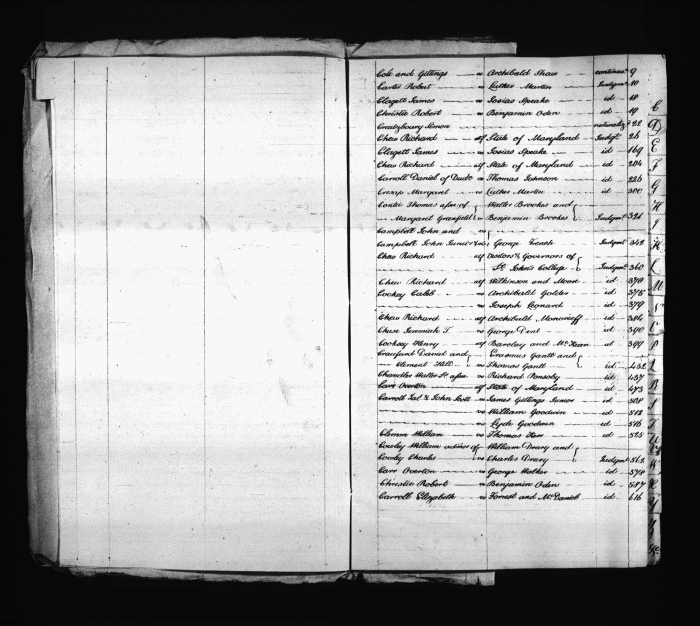 Cole and Gittings vs Archibald Shaw continues 9
Carter Robert vs Luther Martin Judgmt 10
Clagett James vs Josias Speake id 18
Christie Robert vs Benjamin Oden id 19
Simon naturaliz 22
Chew Richard State of Maryland Judgt 26
Clagett James vs Josias Speake id 169
Chew Richard State of Maryland id 204
Carroll Daniel of vs Thomas Johnson id 226
Margaret vs Luther Martin id 300
Thomas Walter Brookes and
Margaret Greenfield Benjamin Brookes Judgmt 321
Campbell John and
Campbell John George French Judgmt 342
Chew Richard Visitors & Governors of
St. John's College Judgmt 360
Chew Richard Wilkinson and Moore id 370
Cockey Caleb vs Archibald Golder id 375
vs Joseph Leonard id 379
Chew Richard Archibald Moncrieff id 384
Chase Jeremiah T. vs George Dent id 390
Cooksey Henry Barclay and McKean id 399
Craufurd David and Erasmus Gantt and
Clement Hill vs Thomas Gantt id 432
Chandler Walter Richard Ponsoby id 437
Carr Overton State of Maryland id 473
Carroll & John Scott vs James Gittings Junior id 508
vs William Goodwin id 512
vs Lyde Goodwin id 516
Clemm William vs Thomas Kerr id 525
Cowley William William Drury and
Cowley Charles vs Charles Drury Judgmt 562
Carr Overton vs George Walker id 578
Christie Robert vs Benjamin Oden id 587
Carroll Elizabeth vs Forrest and McDaniel id 616
C
D
E
F
G
H
J
K
L
M
N